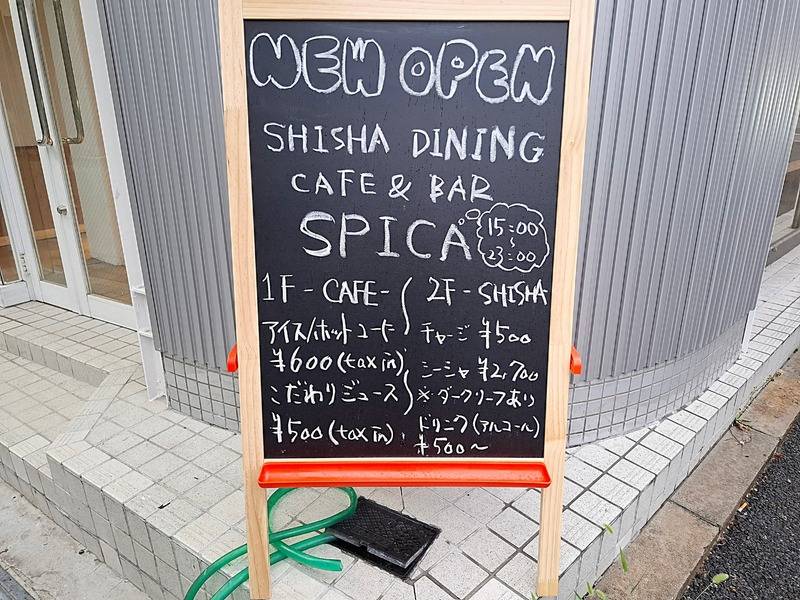 NEW OPEN
SHISHA DINING
CAFE & BAR
SPICA
15:00
~
23:00
1F - CAFE -
アイス/ホットコーヒー
¥600 (tax in)
こだわりジュース
¥500 (tax in)
2F - SHISHA
チャージ ¥500
シーシャ ¥2,700
※ダークリーフあり
ドリンク(アルコール)
¥500~